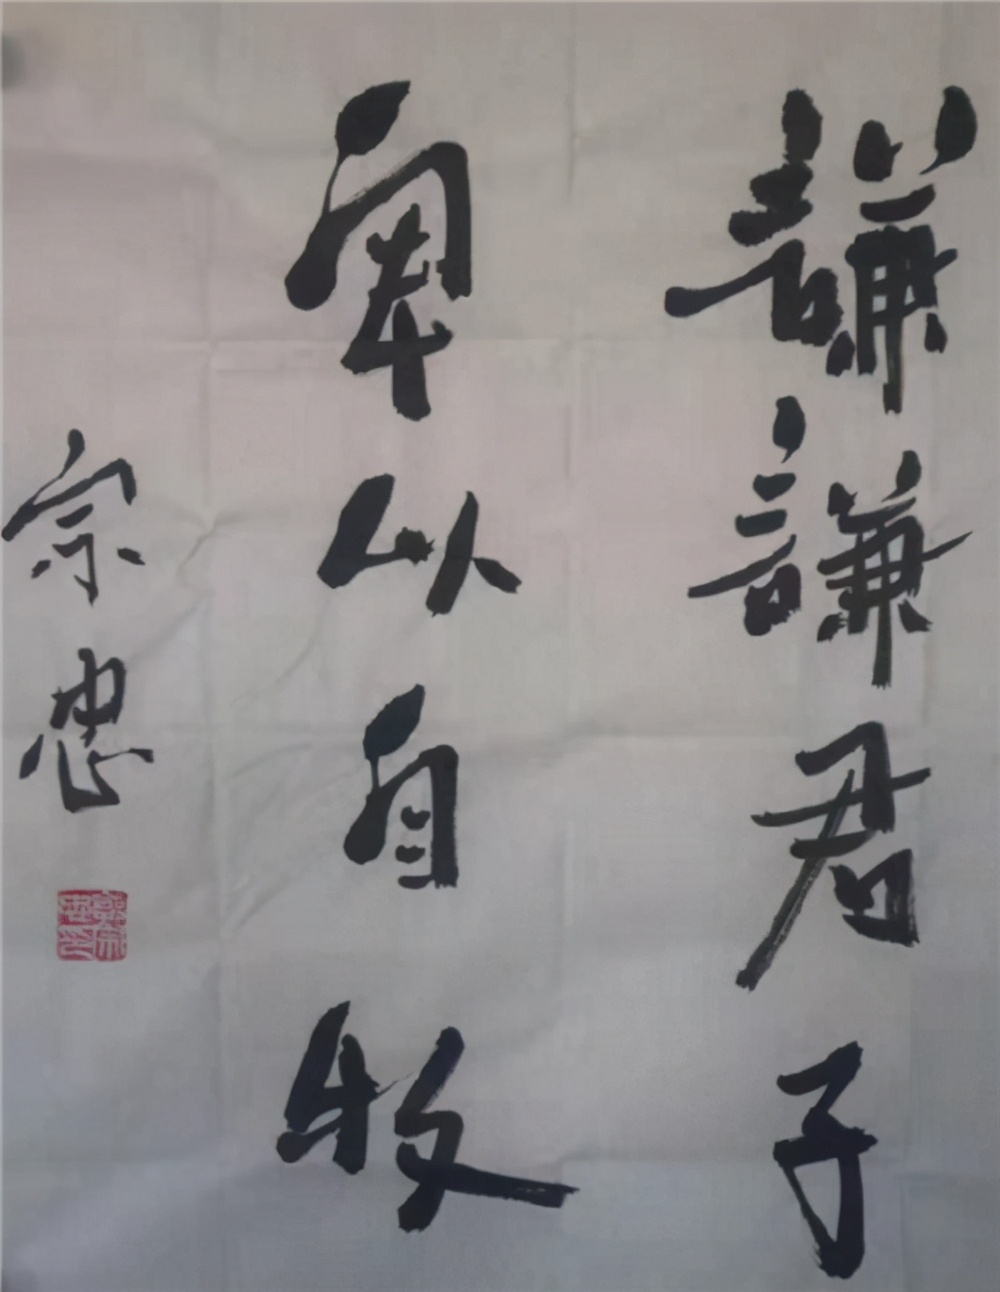 謙謙君子
卑以自牧
宗忠